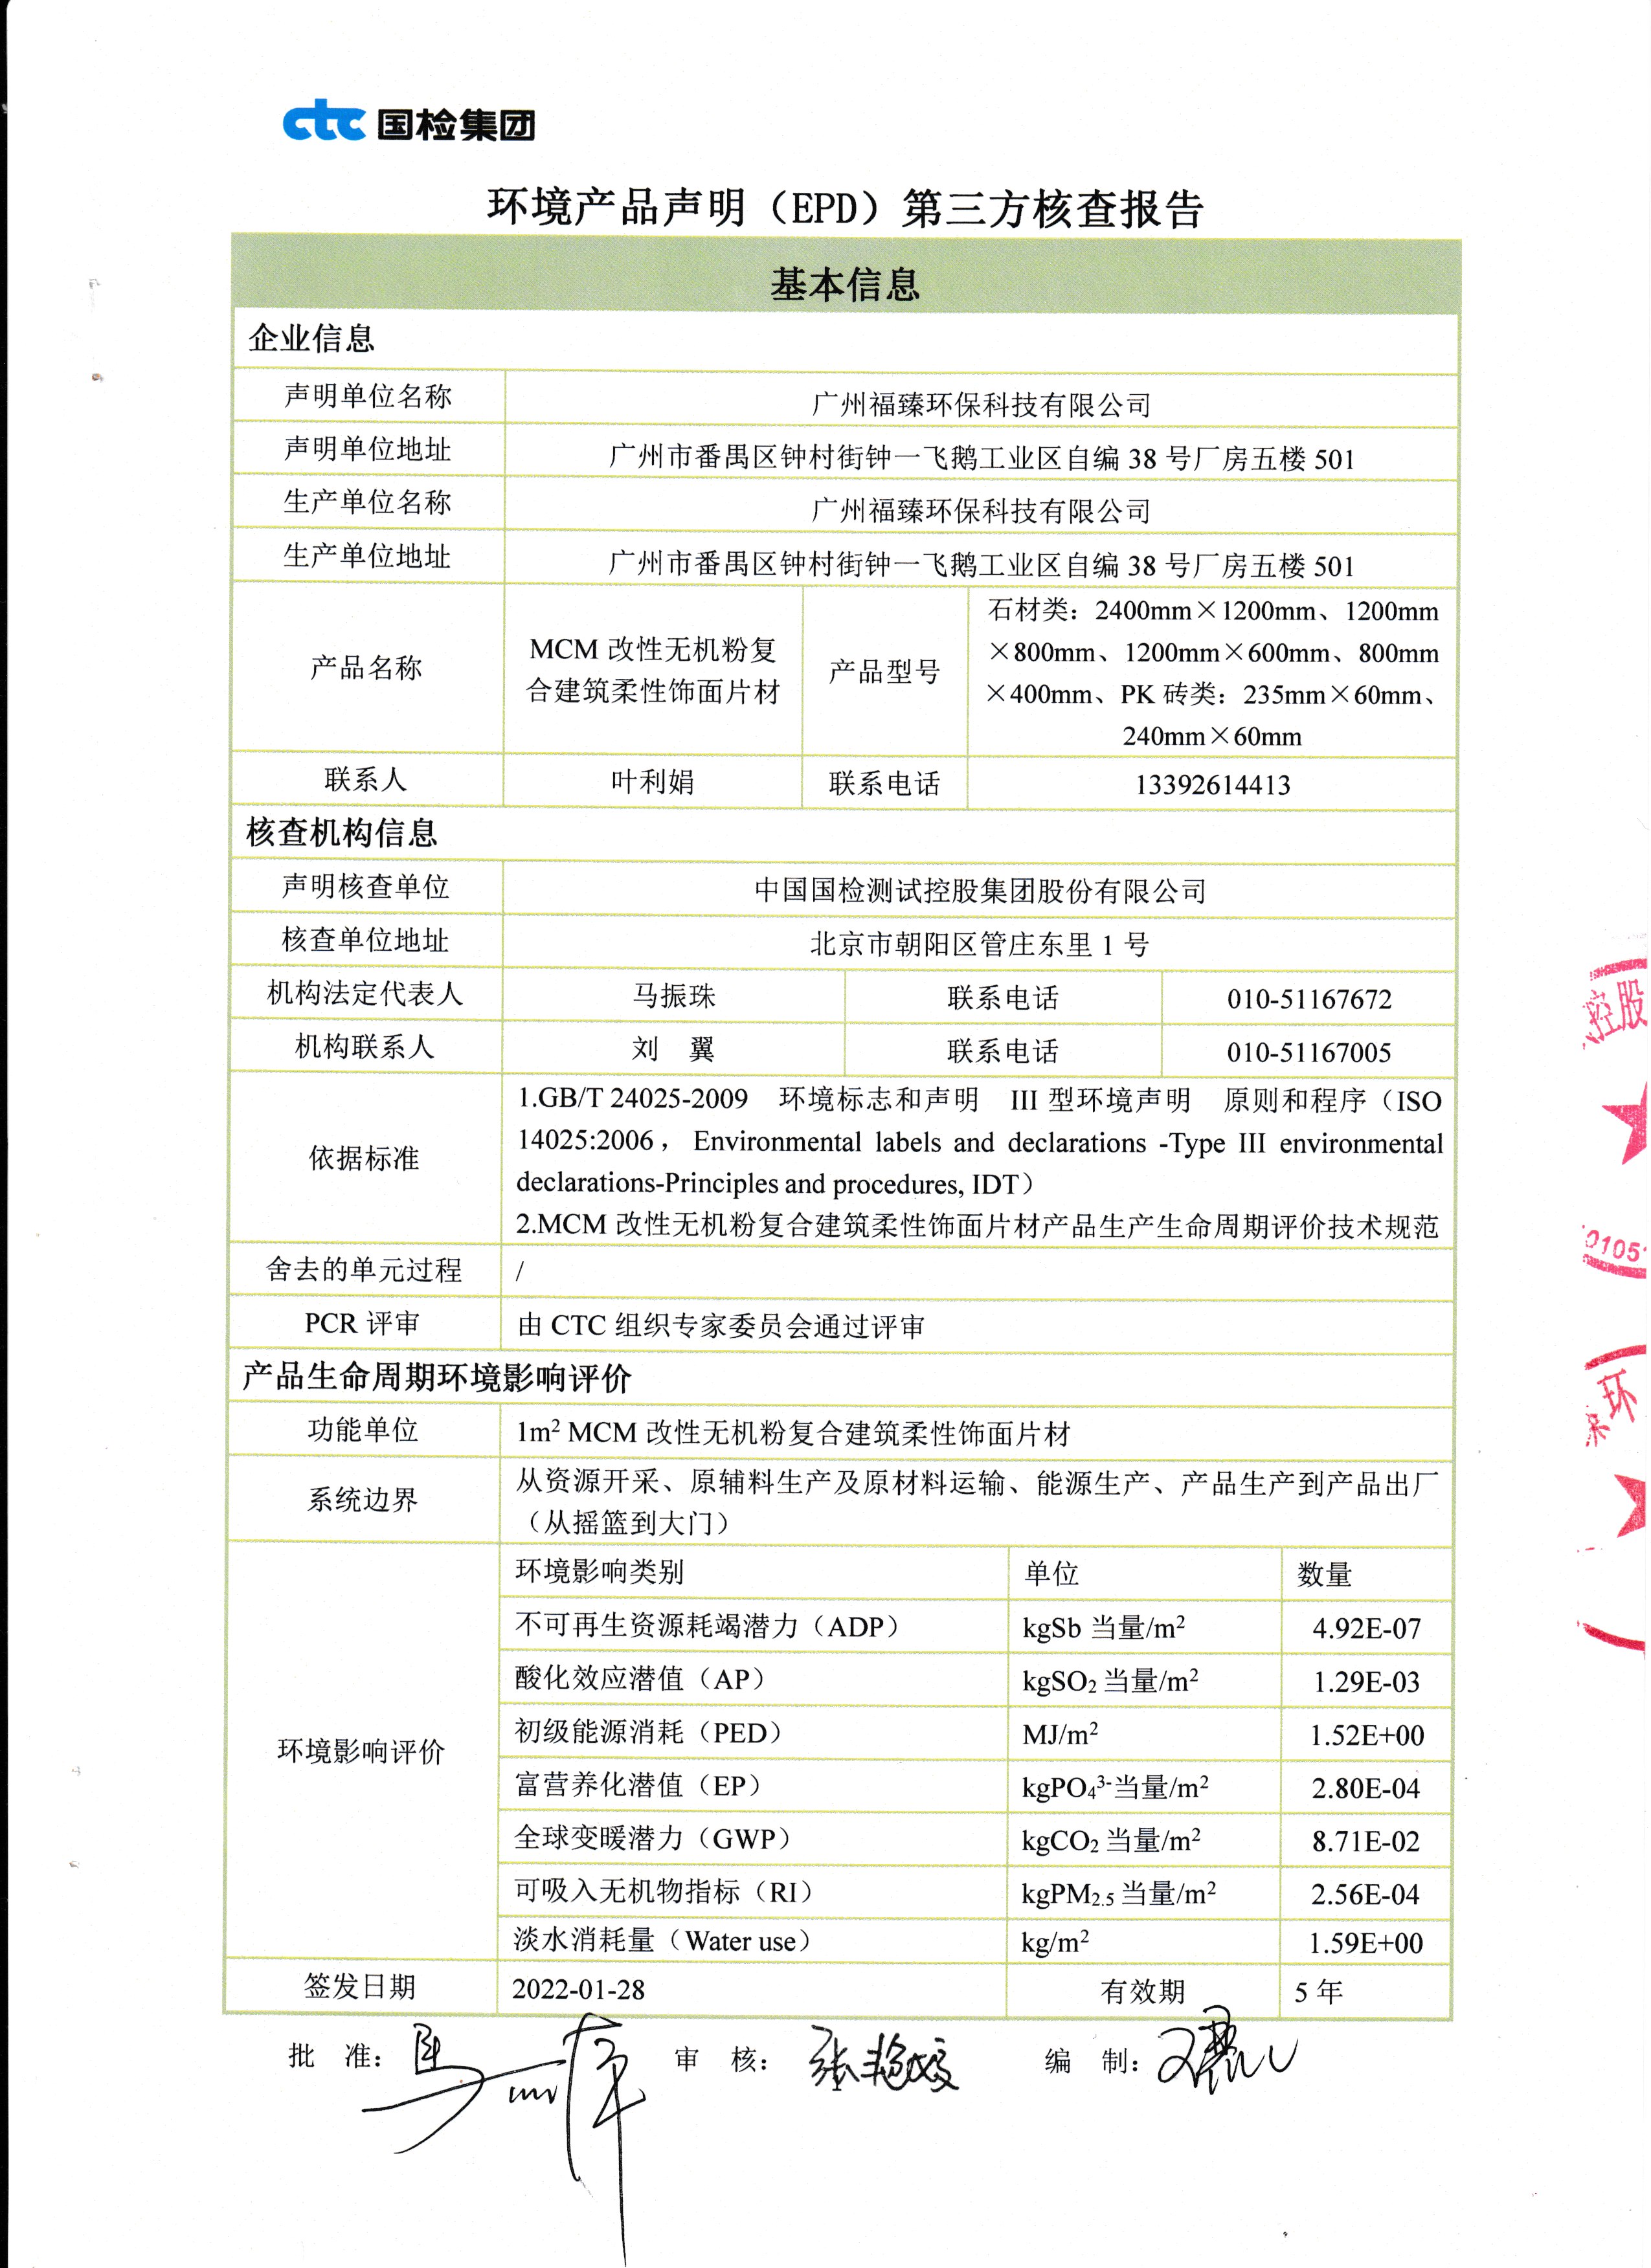 ctc 国检集团
环境产品声明（EPD）第三方核查报告
基本信息
企业信息
声明单位名称 广州福臻环保科技有限公司
声明单位地址 广州市番禺区钟村街钟一飞鹅工业区自编 38 号厂房五楼 501
生产单位名称 广州福臻环保科技有限公司
生产单位地址 广州市番禺区钟村街钟一飞鹅工业区自编 38 号厂房五楼 501
产品名称
MCM 改性无机粉复
合建筑柔性饰面片材
产品型号
石材类：2400mm×1200mm、1200mm
×800mm、1200mm×600mm、800mm
×400mm、PK 砖类：235mm×60mm、
240mm×60mm
联系人 叶利娟 联系电话 13392614413
核查机构信息
声明核查单位 中国国检测试控股集团股份有限公司
核查单位地址 北京市朝阳区管庄东里 1 号
机构法定代表人 马振珠 联系电话 010-51167672
机构联系人 刘 翼 联系电话 010-51167005
依据标准
1.GB/T 24025-2009 环境标志和声明 III 型环境声明 原则和程序（ISO
14025:2006， Environmental labels and declarations -Type III environmental
declarations-Principles and procedures, IDT）
2.MCM 改性无机粉复合建筑柔性饰面片材产品生产生命周期评价技术规范
舍去的单元过程 /
PCR 评审 由 CTC 组织专家委员会通过评审
产品生命周期环境影响评价
功能单位 1m² MCM 改性无机粉复合建筑柔性饰面片材
系统边界
从资源开采、原辅料生产及原材料运输、能源生产、产品生产到产品出厂
（从摇篮到大门）
环境影响评价
环境影响类别 单位 数量
不可再生资源耗竭潜力（ADP） kgSb 当量/m² 4.92E-07
酸化效应潜值（AP） kgSO₂ 当量/m² 1.29E-03
初级能源消耗（PED） MJ/m² 1.52E+00
富营养化潜值（EP） kgPO₄³⁻当量/m² 2.80E-04
全球变暖潜力（GWP） kgCO₂ 当量/m² 8.71E-02
可吸入无机物指标（RI） kgPM₂.₅ 当量/m² 2.56E-04
淡水消耗量（Water use） kg/m² 1.59E+00
签发日期 2022-01-28 有效期 5 年
批 准： 审 核： 编 制：
控股
0105
环